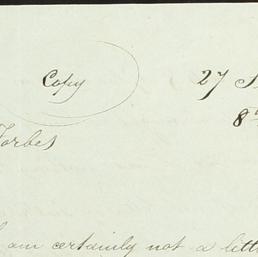 Copy 27
8
Forbes
I am certainly not a